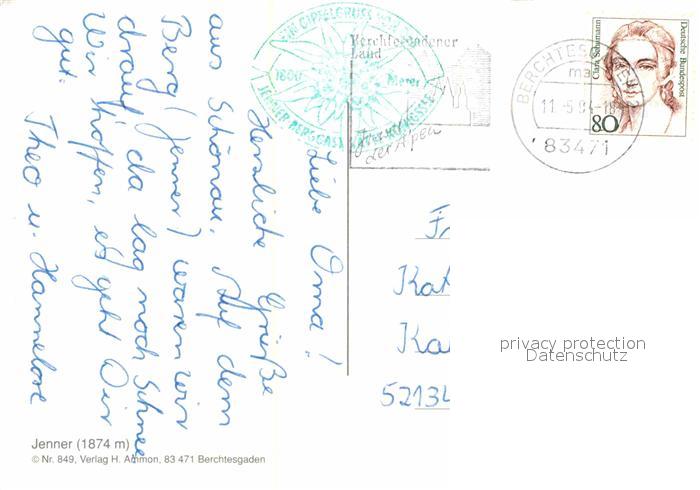 Liebe Oma!
Herzliche Grüße
aus Schönau. Auf dem
Berg (Jenner) waren wir
drauf, da lag noch Schnee
Wir hoffen, es geht Dir
gut.
Theo u. Hannelore
EIN GIPFELGRUSS VOM
1800 Meter
JENNER BERGGASTSTÄTTE
Berchtesgadener
Land
der Alpen
BERCHTESGADEN
ma
11.-5.94-18
83471
Clara Schumann
Deutsche Bundespost
80
Fr
Kat
Ka
5213
privacy protection
Datenschutz
Jenner (1874 m)
© Nr. 849, Verlag H. Ammon, 83 471 Berchtesgaden